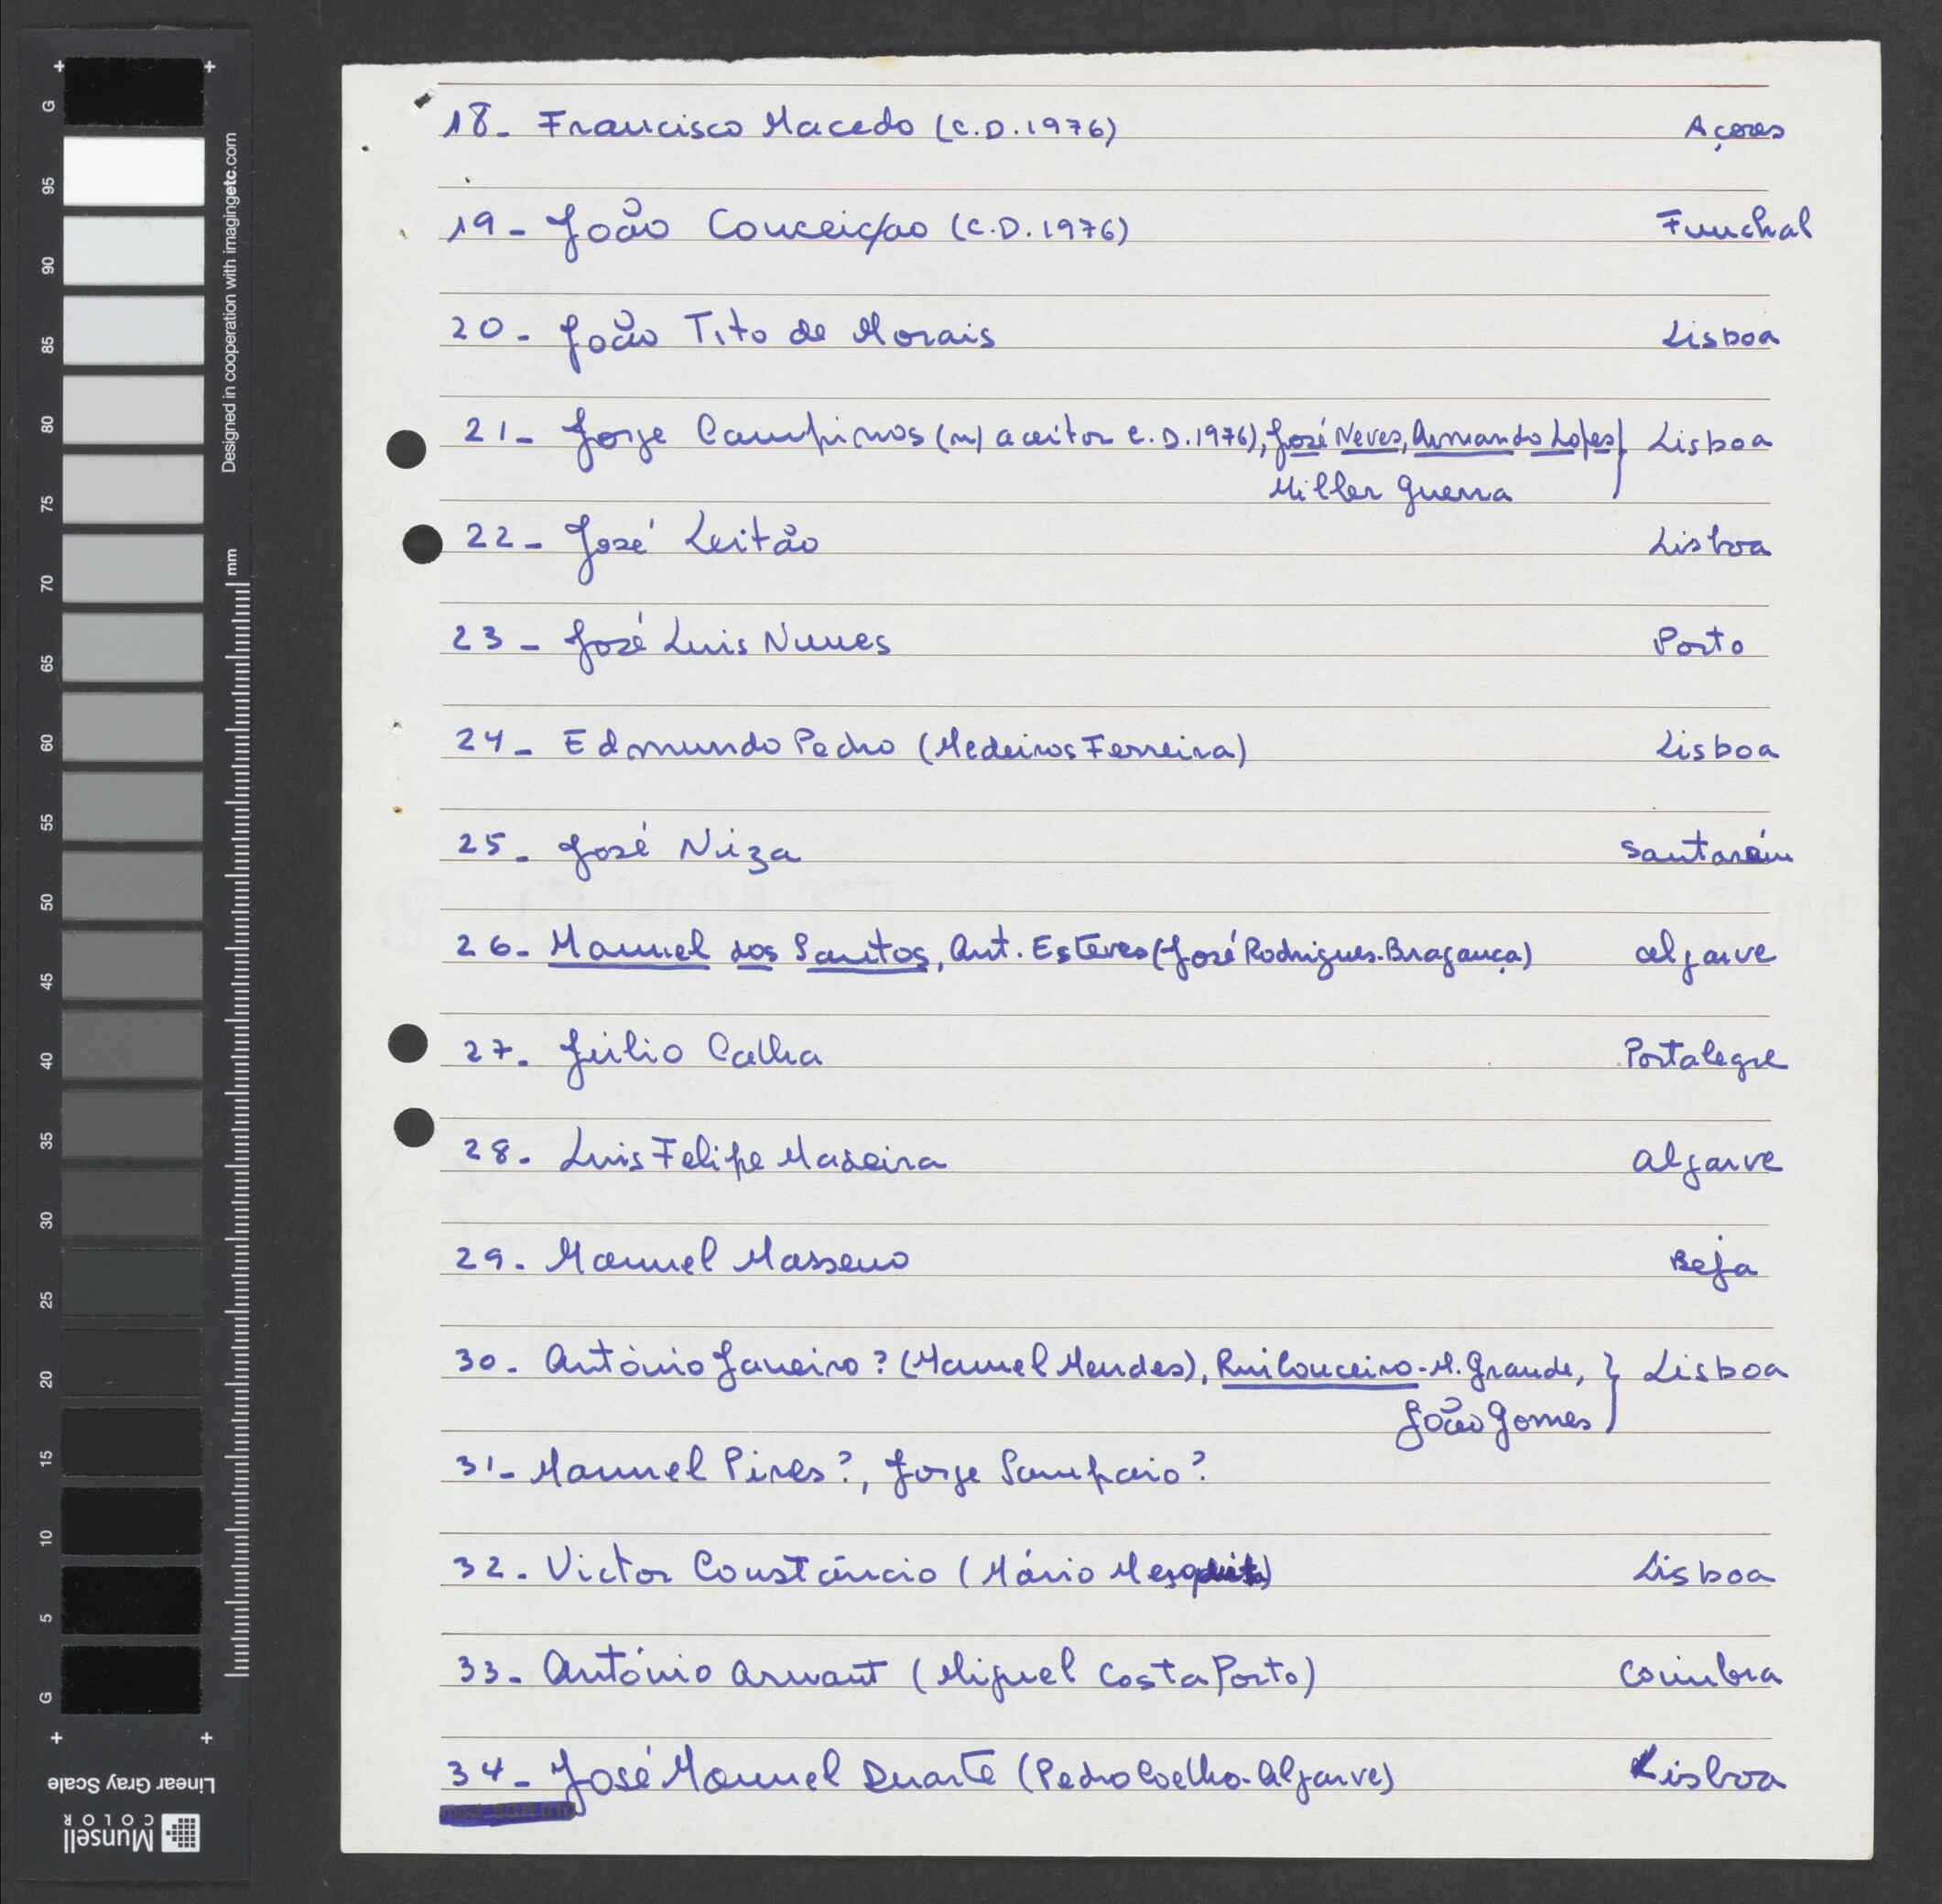 18- Francisco Macedo (C.D.1976) Açores
19- João Conceição (C.D.1976) Funchal
20- João Tito de Morais Lisboa
21- Jorge Campinos (n/ aceitou C.D.1976), José Neves, Armando Lopes} Lisboa
Miller Guerra
22- José Leitão Lisboa
23- José Luis Nunes Porto
24- Edmundo Pedro (Medeiros Ferreira) Lisboa
25- José Niza Santarém
26- Manuel dos Santos, Ant. Esteves (José Rodrigues-Bragança) Algarve
27. Júlio Calha Portalegre
28. Luis Felipe Madeira Algarve
29. Manuel Masseno Beja
30. António Janeiro? (Manuel Mendes), Rui Conceiro-M. Grande, } Lisboa
João Gomes
31- Manuel Pires?, Jorge Sampaio?
32. Victor Constâncio (Mário Mesquita) Lisboa
33- António Arnaut (Miguel Costa Porto) Coimbra
34- José Manuel Duarte (Pedro Coelho-Algarve) Lisboa
G 95 90 85 80 75 70 65 60 55 50 45 40 35 30 25 20 15 10 5 G
Designed in cooperation with imagingetc.com
mm
Linear Gray Scale
Munsell
COLOR